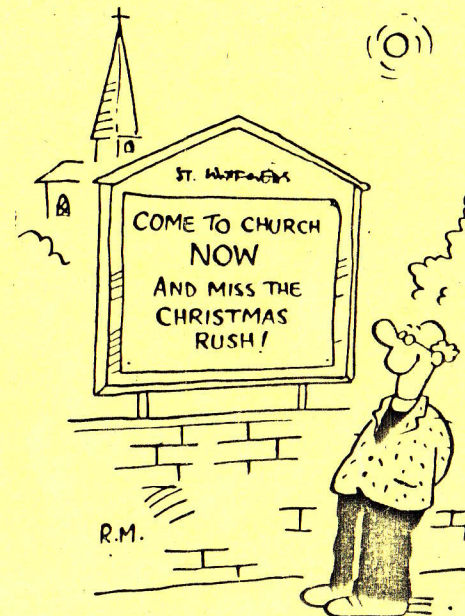 ST.
COME TO CHURCH
NOW
AND MISS THE
CHRISTMAS
RUSH!
R.M.